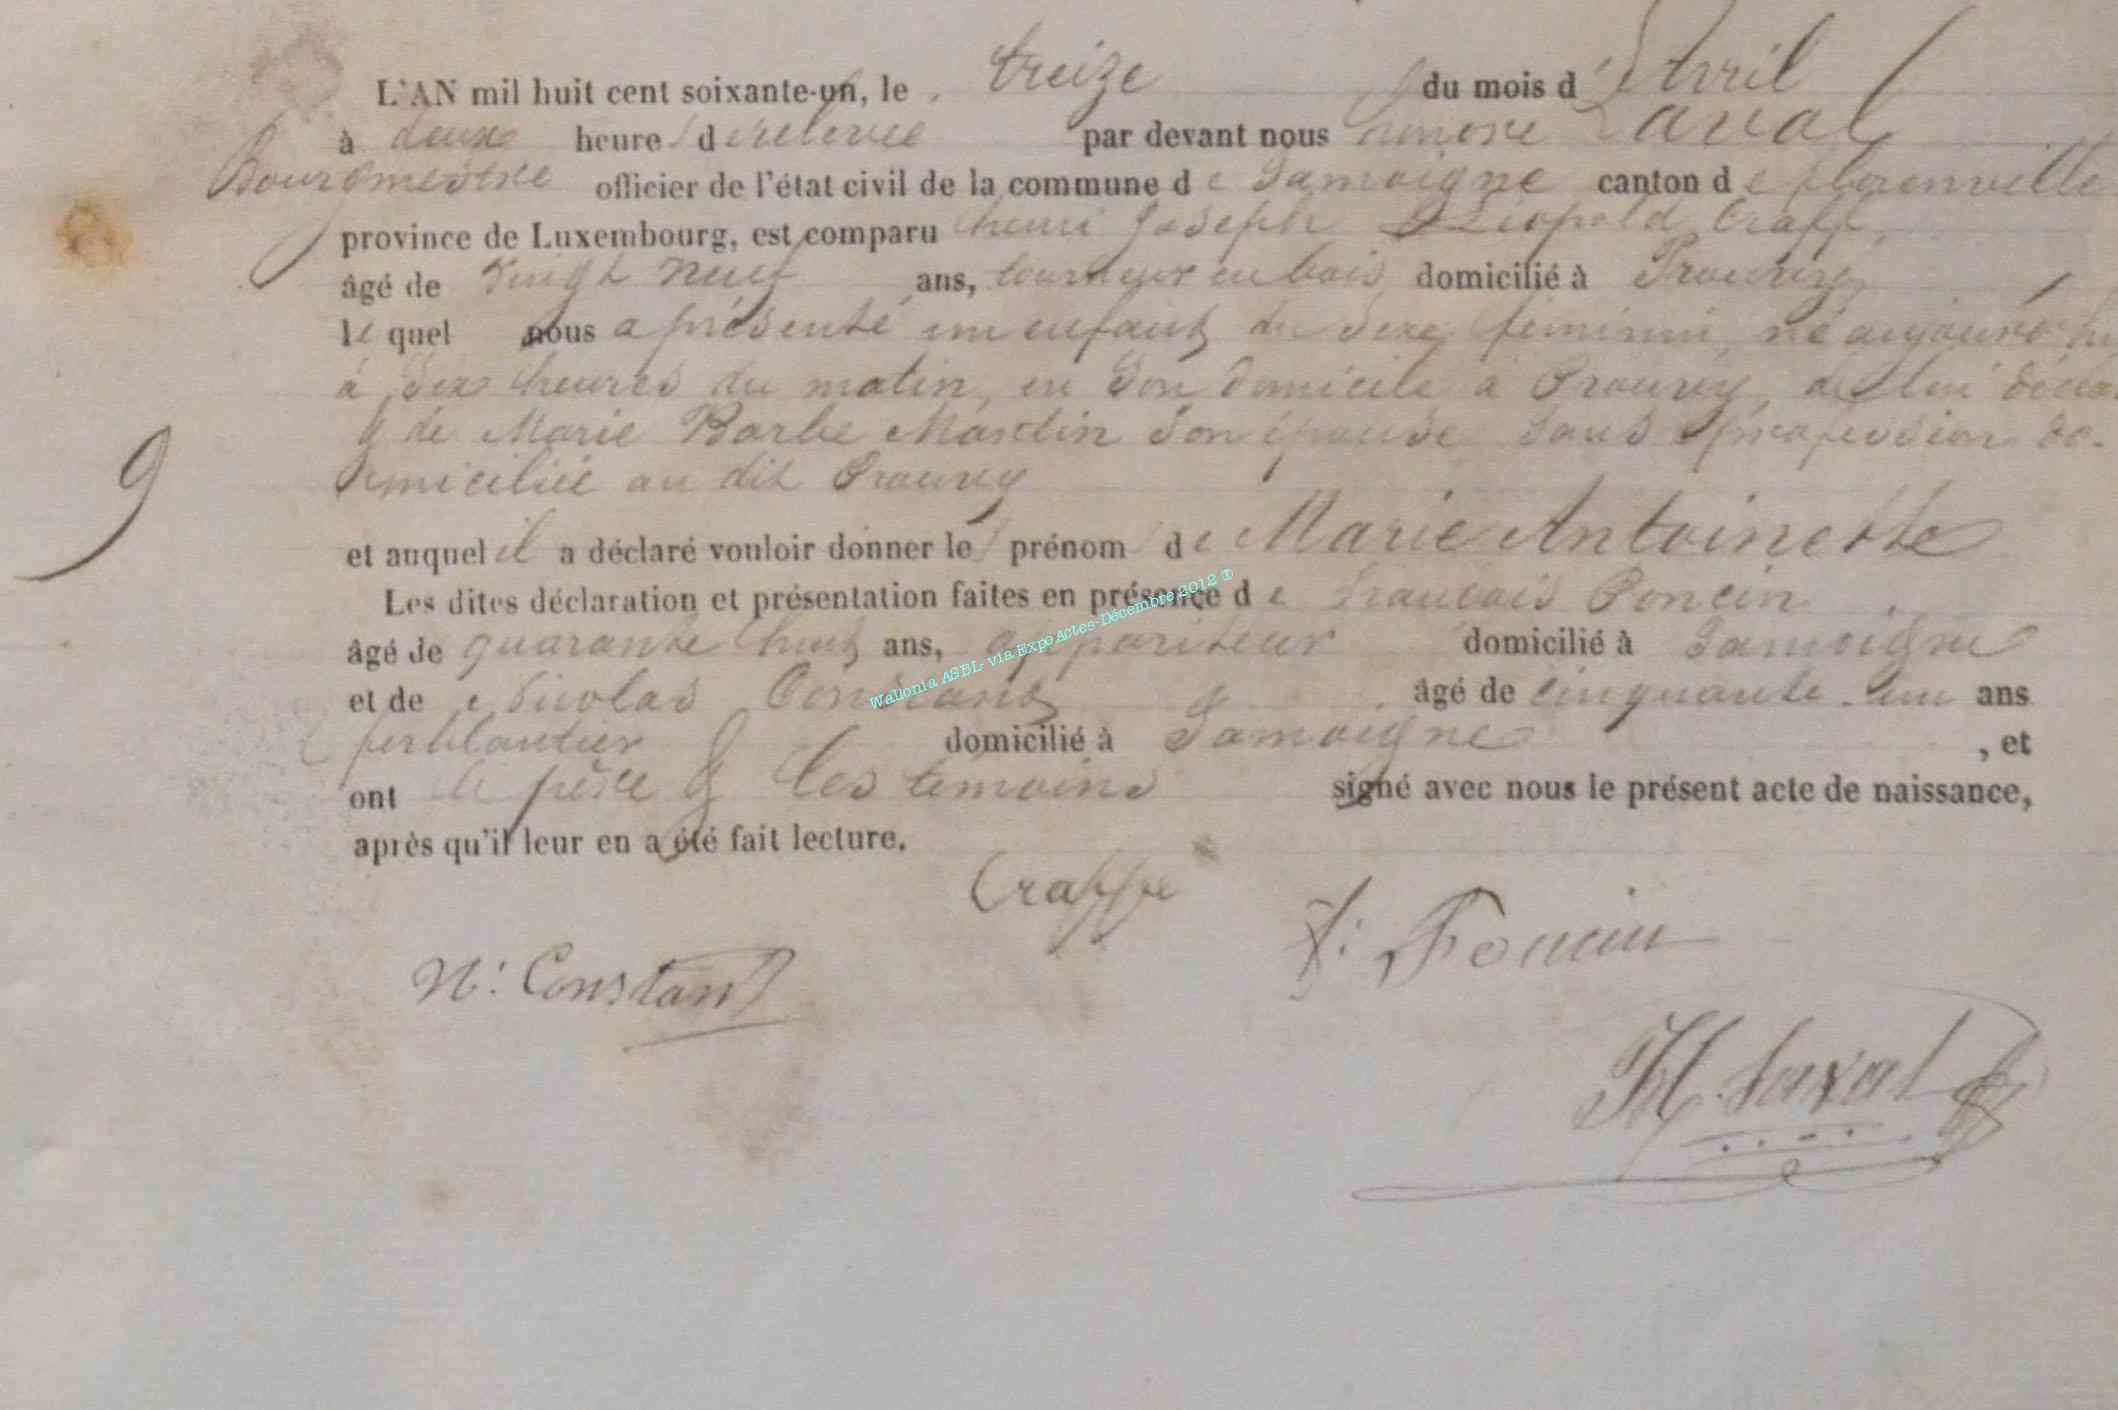 L'AN mil huit cent soixante-un, le treize du mois d'Avril
à deux heures de relevée par devant nous honoré Laval
Bourgmestre officier de l'état civil de la commune de Jamoigne canton de florenville
province de Luxembourg, est comparu henri Joseph Léopold Craffe,
âgé de vingt neuf ans, tourneur en bois domicilié à Prouvy
le quel nous a présenté un enfant du sexe féminin, né aujourd'hui
à dix heures du matin, en son domicile à Prouvy, de lui décla
& de Marie Barbe Martin son épouse sans profession do-
miciliée au dit Prouvy
9
et auquel il a déclaré vouloir donner les prénoms de Marie Antoinette
Les dites déclaration et présentation faites en présence de François Poncin
âgé de quarante huit ans, appariteur domicilié à Jamoigne
et de Nicolas Constant âgé de cinquante-un ans
ferblantier domicilié à Jamoigne, et
ont le père & les témoins signé avec nous le présent acte de naissance,
après qu'il leur en a été fait lecture.
Craffe
f: Poncin
N: Constant
H. Laval
Wallonia ASBL via ExpoActes-Décembre 2012 ®